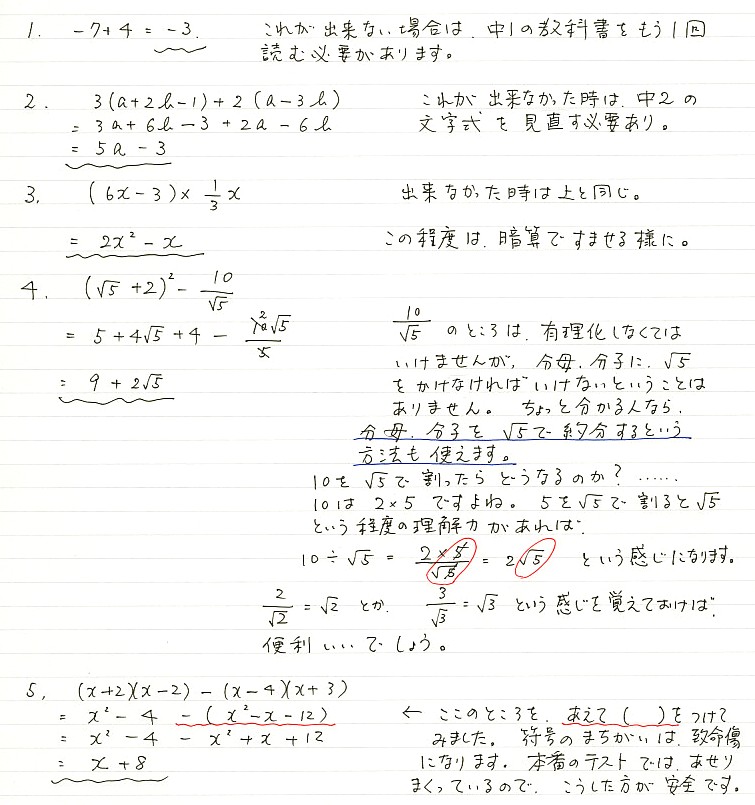 1. -7+4 = -3. これが出来ない場合は、中1の教科書をもう1回
読む必要があります。
2. 3(a+2b-1)+2(a-3b) これが出来なかった時は、中2の
= 3a+6b-3+2a-6b 文字式を見直す必要あり。
= 5a-3
3. (6x-3)×1/3x 出来なかった時は上と同じ。
= 2x²-x この程度は、暗算ですませる様に。
4. (√5+2)²-10/√5
= 5+4√5+4-10√5/5 2
= 9+2√5
10/√5 のところは、有理化しなくては
いけませんが、分母、分子に、√5
をかけなければいけないということは
ありません。 ちょっと分かる人なら、
分母、分子を √5で約分するという
方法も使えます。
10を √5で割ったらどうなるのか?……
10は 2×5 ですよね。 5を√5で割ると√5
という程度の理解力があれば、
10÷√5 = 2×5/√5 = 2√5 という感じになります。
2/√2=√2 とか、 3/√3=√3 という感じを覚えておけば、
便利いいでしょう。
5. (x+2)(x-2)-(x-4)(x+3)
= x²-4-(x²-x-12) ← ここのところを、あえて( )をつけて
= x²-4-x²+x+12 みました。 符号のまちがいは、致命傷
= x+8 になります。 本番のテストでは、あせり
まくっているので、こうした方が安全です。